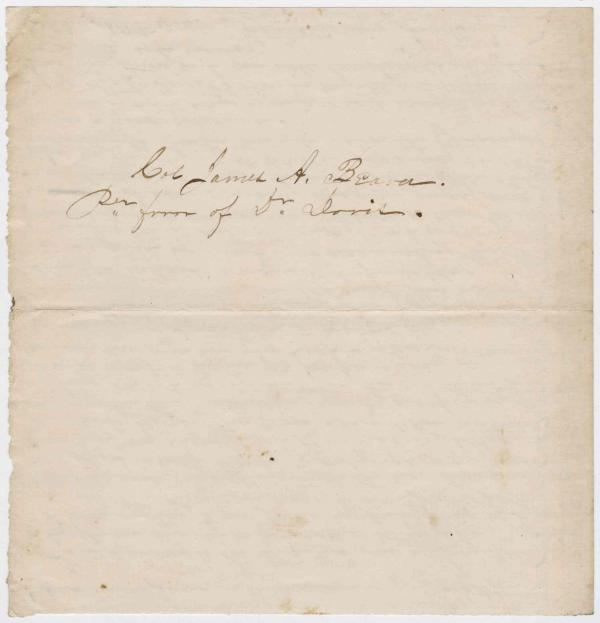 Col James A. Beaver.
Per favor of Dr. Davis.